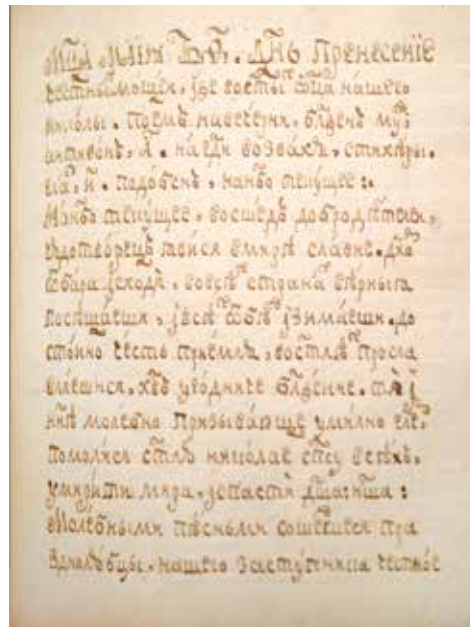 Мц҃а маїа въ ѳ҃. Днь Пренесенїе
честныⷯ мощеи, иже восты҃ⷯ ѿц҃а нашего
николы. Поемъ навечерни, бл҃женъ муⷤ
антифонъ, а҃. нагд҃и возвахъ, стихиры.
гла҃, и҃. подобенъ, нанб҃о текущее :
Нанб҃о текущее, восшедъ добродѣтели,
чюдотворецъ
славне. дх҃о
исходя, вовсѧ страны вѣрныѧ
посѣщаеши, до
стоино честь приемля, востыⷯ просла
влешися, хв҃ъ угодниче бл҃жение. тѧ і
нн҃ѣ молебно призывающе умилно
помолися ст҃лю николае сп҃су всѣхъ.
умирити мира, и спасти дш҃а нш҃а :
Молебными пѣсньми сошедшеся пра
нашего заступника честное